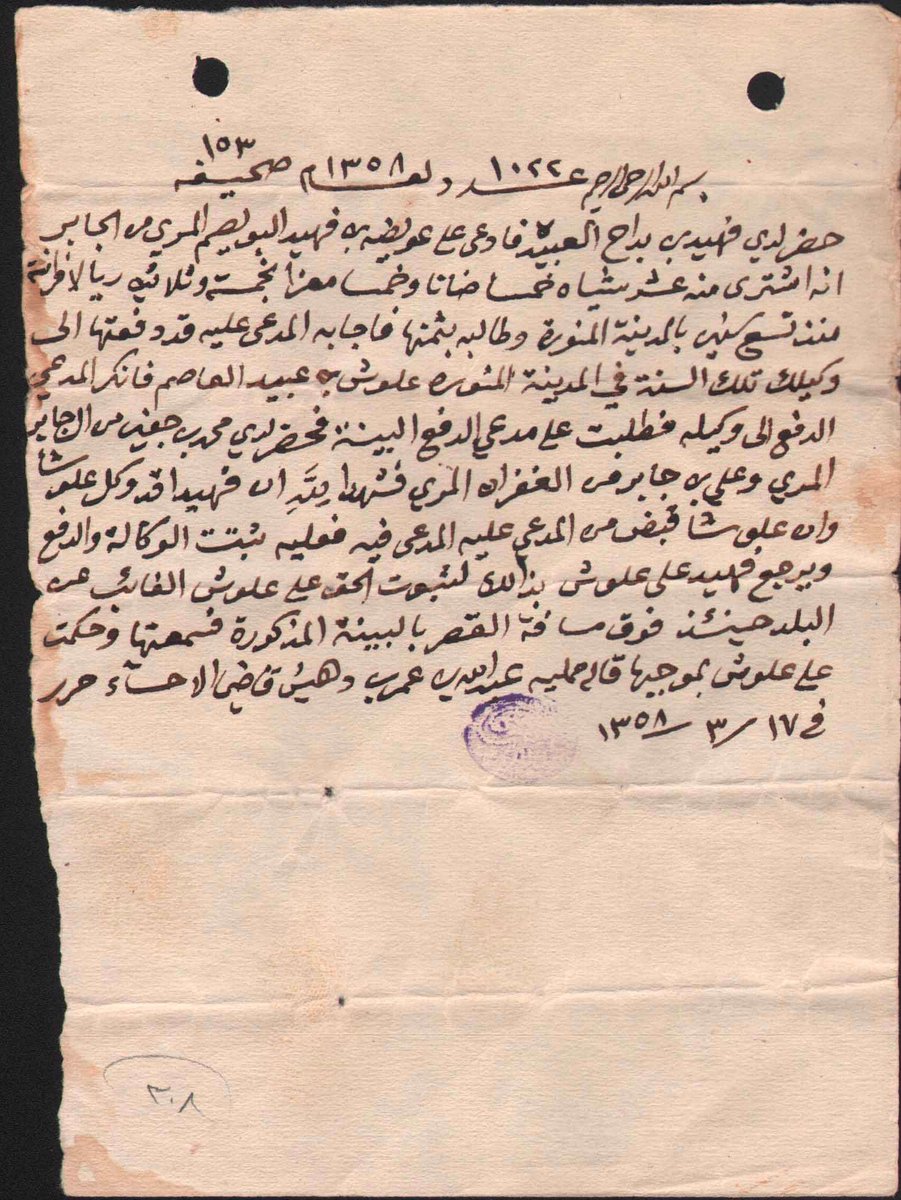 ١٥٣
بسم الله الرحمن الرحيم عــدد ١٠٢٢ ولعــام ١٣٥٨ صحيفه
حضر لدي فهيد بن بداح العبيدة فادعى على عويضه بن فهيد البويصم المري من الجابر
انه اشترى منه عشر شياه خمسا ضانا وخمسا معزا بخمسة وثلاثين ريالا فرانة
منذ تسع سنين بالمدينة المنورة وطالبه بثمنها فاجابه المدعى عليه قد دفعتها الى
وكيلك تلك السنة في المدينة المنوره علوش بن عبيد العاصم فانكر المدعي
الدفع الى وكيله فطلبت على مدعي الدفع البينة فحضر لدي محمد بن جفين من ال جابر
المري وعلي بن جابر من الغفران المري فشهدا ان فهيدا قد وكل علوشا
وان علوشا قبض من المدعي عليه المدعى فيه فعليه ثبتت الوكالة والدفع
ويرجع فهيد على علوش بذالك لثبوت الحق على علوش الغائب عن
البلد حينئذ فوق مسافة القصر بالبينة المذكورة فسمعتها وحكمت
على علوش بموجبها قاله ممليه عبد الله بن عمر بن دهيش قاضي الاحساء حرر
في ١٧/ ٣/ ١٣٥٨
٣٠٨